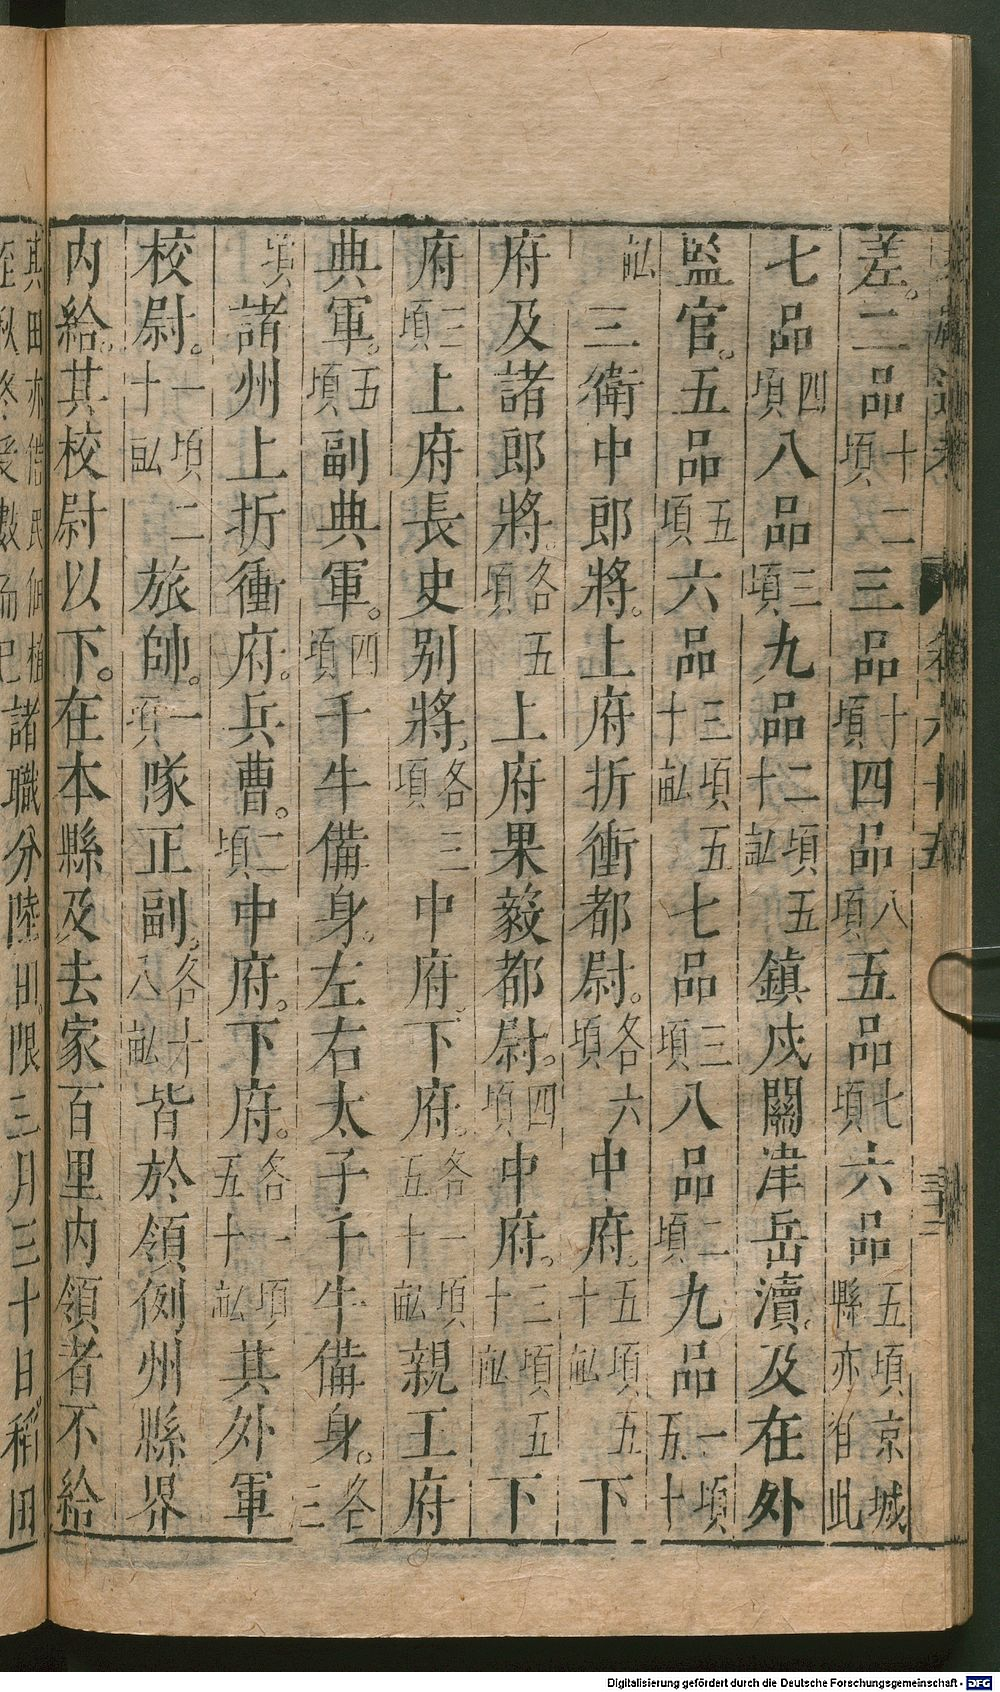 通考 卷六十五
差。二品十二頃三品十頃四品八頃五品七頃六品五頃京城縣亦准此
七品四頃八品三頃九品二頃五十畝鎮戍關津岳瀆。及在外
監官。五品五頃六品三頃五十畝七品三頃八品二頃九品一頃五十
畝三衛中郎將。上府折衝都尉。各六頃中府。五頃五十畝下
府及諸郎將。各五頃上府果毅都尉。四頃中府。三頃五十畝下
府三頃上府長史別將。各三頃中府。下府。各一頃五十畝親王府
典軍。五頃副典軍。四頃千牛備身。左右太子千牛備身。各三
頃諸州上折衝府。兵曹。二頃中府。下府。各一頃五十畝其外軍
校尉。一頃二十畝旅帥。一頃隊正副。各十八畝皆於領例州縣界
內給。其校尉以下。在本縣及去家百里內領者不給
其田亦借民佃植至秋冬受數而已諸職分陸田。限三月三十日稻田
Digitalisierung gefördert durch die Deutsche Forschungsgemeinschaft - DFG